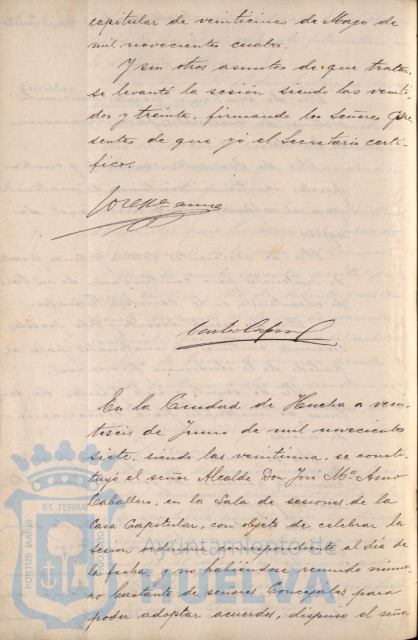 capitular de veinticinco de Mayo de
mil novecientos cuatro.
Y sin otros asuntos de que tratar
se levantó la sesión siendo las veinti
dos y treinta, firmando los Señores pre
sentes de que yó el Secretario certi-
fico.
En la Ciudad de Huelva a vein
tiseis de Junio de mil novecientos
siete, siendo las veintiuna, se consti-
tuyó el señor Alcalde Don José Mª
Caballero, en la Sala de sesiones de la
Casa Capitular, con objeto de celebrar la
sesion ordinaria correspondiente al dia de
la fecha, y no habiendose reunido núme
ro bastante de señores Concejales para
poder adoptar acuerdos, dispuso el señor
PORTUS MARIS
ET TERRAE
Ayuntamiento de
HUELVA